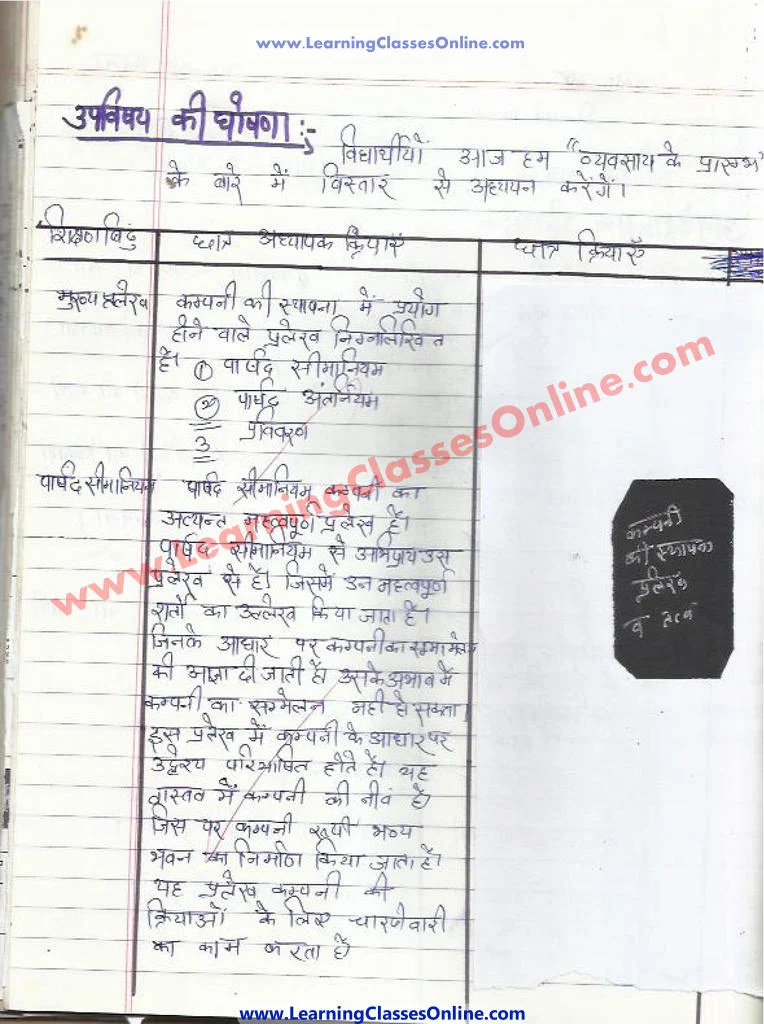 www.LearningClassesOnline.com
उपविषय की घोषणा :-
विद्यार्थीयों आज हम "व्यवसाय के प्रारम्भ"
के बारे में विस्तार से अध्ययन करेंगें।
शिक्षण बिंदु छात्र अध्यापक क्रियाएँ छात्र क्रियाएँ
मुख्य प्रलेख कम्पनी की स्थापना में प्रयोग
होने वाले प्रलेख निम्नलिखित
है। ① पार्षद सीमानियम
② पार्षद अंतर्नियम
3 प्रविवरण
पार्षद सीमानियम पार्षद सीमानियम कम्पनी का
अत्यन्त महत्वपूर्ण प्रलेख है।
पार्षद सीमानियम से अभिप्राय उस
प्रलेख से है। जिसमें उन महत्वपूर्ण
शर्तो का उल्लेख किया जाता है।
जिनके आधार पर कम्पनी का
की आज्ञा दी जाती है। उसके अभाव में
कम्पनी का सम्मेलन नही हो सकता।
इस प्रलेख में कम्पनी के आधार पर
उद्देश्य परिभाषित होते है। यह
वास्तव में कम्पनी की नीवं है।
जिस पर कम्पनी रूपी भव्य
भवन का निर्माण किया जाता है।
यह प्रलेख कम्पनी की
क्रियाओं के लिए चारदीवारी
का काम करता है
कम्पनी
की स्थापना
प्रलेख
व तत्व
www.LearningClassesOnline.com
www.LearningClassesOnline.com